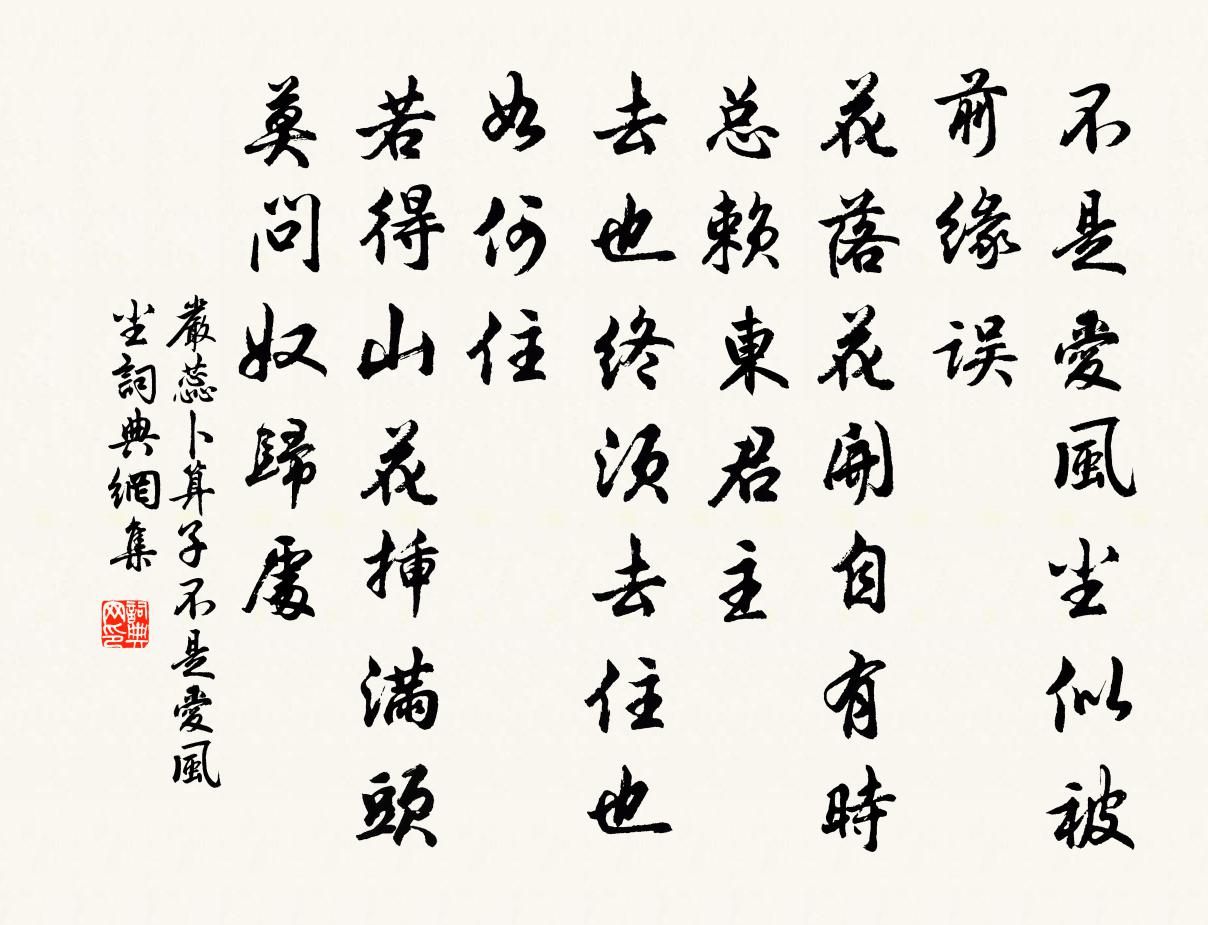 不是愛風尘似被
前缘误
花落花開自有時
总赖東君主
去也终须去住也
如何住
若得山花插滿頭
莫問奴歸處
嚴蕊卜算子不是愛風
尘詞典網集
詞典网印